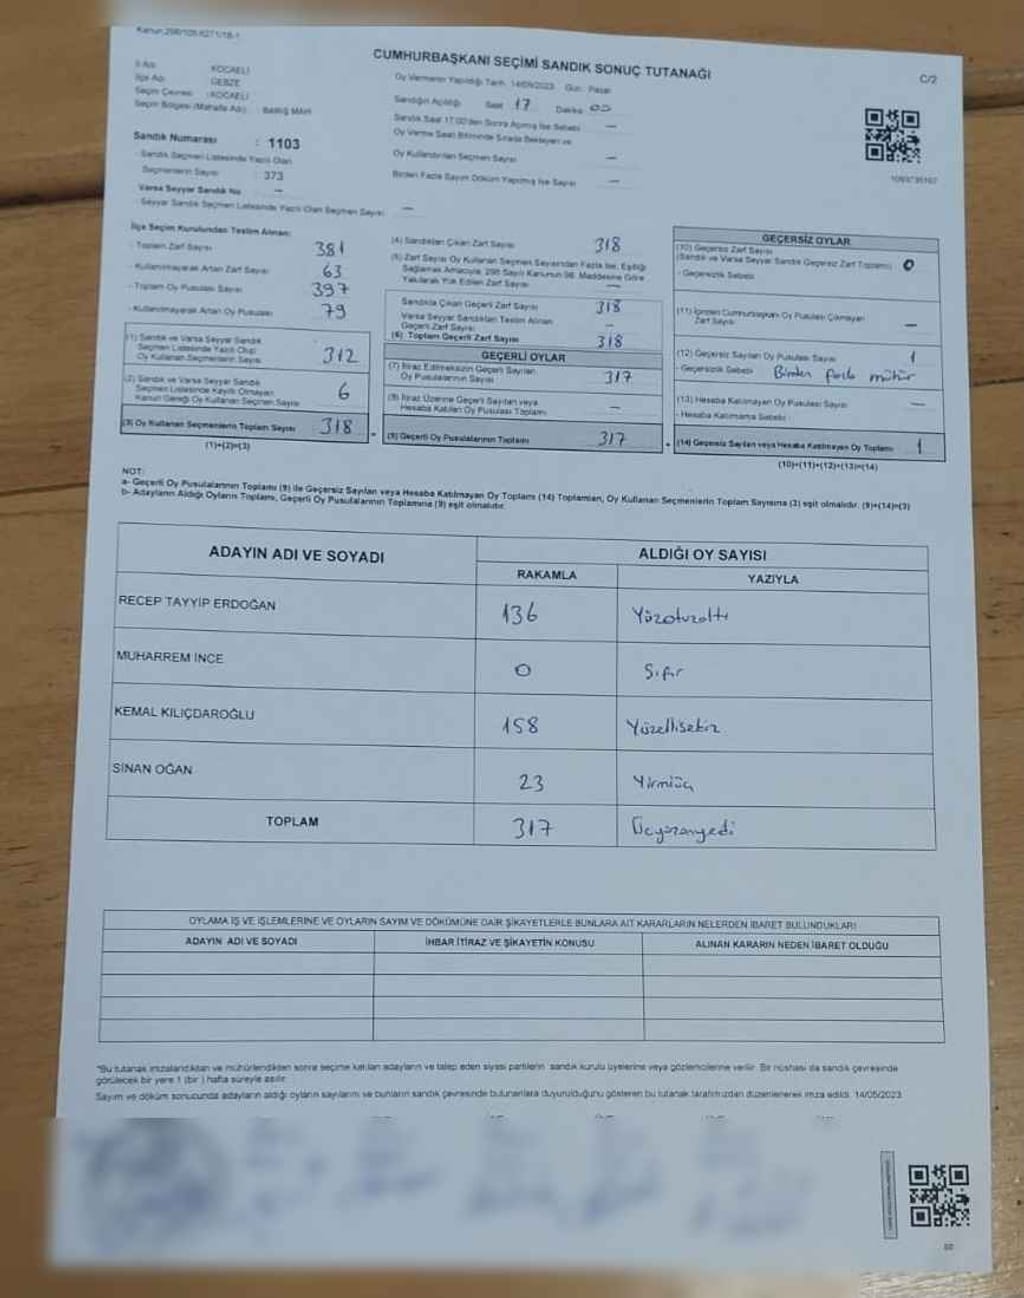 Kanun:298/105.6271/18-1
CUMHURBAŞKANI SEÇİMİ SANDIK SONUÇ TUTANAĞI
C/2
İl Adı : KOCAELİ
İlçe Adı : GEBZE
Seçim Çevresi : KOCAELİ
Seçim Bölgesi (Mahalle Adı) : BARIŞ MAH
Sandık Numarası : 1103
- Sandık Seçmen Listesinde Yazılı Olan
Seçmenlerin Sayısı : 373
Varsa Seyyar Sandık No —
- Seyyar Sandık Seçmen Listesinde Yazılı Olan Seçmen Sayısı —
Oy Vermenin Yapıldığı Tarih 14/05/2023 Gün: Pazar
Sandığın Açıldığı Saat 17 Dakika 00
Sandık Saat 17:00'den Sonra Açılmış İse Sebebi —
Oy Verme Saati Bitiminde Sırada Bekleyen ve
Oy Kullandırılan Seçmen Sayısı —
Birden Fazla Sayım Döküm Yapılmış İse Sayısı —
İlçe Seçim Kurulundan Teslim Alınan:
- Toplam Zarf Sayısı 381
- Kullanılmayarak Artan Zarf Sayısı 63
- Toplam Oy Pusulası Sayısı 397
- Kullanılmayarak Artan Oy Pusulası 79
(1) Sandık ve Varsa Seyyar Sandık
Seçmen Listesinde Yazılı Olup
Oy Kullanan Seçmenlerin Sayısı 312
(2) Sandık ve Varsa Seyyar Sandık
Seçmen Listesinde Kayıtlı Olmayan
Kanun Gereği Oy Kullanan Seçmen Sayısı 6
(3) Oy Kullanan Seçmenlerin Toplam Sayısı 318
(1)+(2)=(3)
(4) Sandıktan Çıkan Zarf Sayısı 318
(5) Zarf Sayısı Oy Kullanan Seçmen Sayısından Fazla İse, Eşitliği
Sağlamak Amacıyla, 298 Sayılı Kanunun 98. Maddesine Göre
Yakılarak Yok Edilen Zarf Sayısı —
Sandıkta Çıkan Geçerli Zarf Sayısı 318
Varsa Seyyar Sandıktan Teslim Alınan
Geçerli Zarf Sayısı —
(6) Toplam Geçerli Zarf Sayısı 318
GEÇERLİ OYLAR
(7) İtiraz Edilmeksizin Geçerli Sayılan
Oy Pusulalarının Sayısı 317
(8) İtiraz Üzerine Geçerli Sayılan veya
Hesaba Katılan Oy Pusulası Toplamı —
(9) Geçerli Oy Pusulalarının Toplamı 317
GEÇERSİZ OYLAR
(10) Geçersiz Zarf Sayısı
(Sandık ve Varsa Seyyar Sandık Geçersiz Zarf Toplamı) 0
- Geçersizlik Sebebi
(11) İçinden Cumhurbaşkanı Oy Pusulası Çıkmayan
Zarf Sayısı —
(12) Geçersiz Sayılan Oy Pusulası Sayısı 1
- Geçersizlik Sebebi Birden fazla mühür
(13) Hesaba Katılmayan Oy Pusulası Sayısı —
- Hesaba Katılmama Sebebi :
(14) Geçersiz Sayılan veya Hesaba Katılmayan Oy Toplamı 1
(10)+(11)+(12)+(13)=(14)
NOT:
a- Geçerli Oy Pusulalarının Toplamı (9) ile Geçersiz Sayılan veya Hesaba Katılmayan Oy Toplamı (14) Toplamları, Oy Kullanan Seçmenlerin Toplam Sayısına (3) eşit olmalıdır. (9)+(14)=(3)
b- Adayların Aldığı Oyların Toplamı, Geçerli Oy Pusulalarının Toplamına (9) eşit olmalıdır.
ADAYIN ADI VE SOYADI
ALDIĞI OY SAYISI
RAKAMLA YAZIYLA
RECEP TAYYİP ERDOĞAN 136 Yüzotuzaltı
MUHARREM İNCE 0 Sıfır
KEMAL KILIÇDAROĞLU 158 Yüzellisekiz
SİNAN OĞAN 23 Yirmiüç
TOPLAM 317 Üçyüzonyedi
OYLAMA İŞ VE İŞLEMLERİNE VE OYLARIN SAYIM VE DÖKÜMÜNE DAİR ŞİKAYETLERLE BUNLARA AİT KARARLARIN NELERDEN İBARET BULUNDUKLARI
ADAYIN ADI VE SOYADI İHBAR İTİRAZ VE ŞİKAYETİN KONUSU ALINAN KARARIN NEDEN İBARET OLDUĞU
"Bu tutanak imzalandıktan ve mühürlendikten sonra seçime katılan adayların ve talep eden siyasi partilerin sandık kurulu üyelerine veya gözlemcilerine verilir. Bir nüshası da sandık çevresinde
görülecek bir yere 1 (bir ) hafta süreyle asılır.
Sayım ve döküm sonucunda adayların aldığı oyların sayılarını ve bunların sandık çevresinde bulunanlara duyurulduğunu gösteren bu tutanak tarafımızdan düzenlenerek imza edildi. 14/05/2023